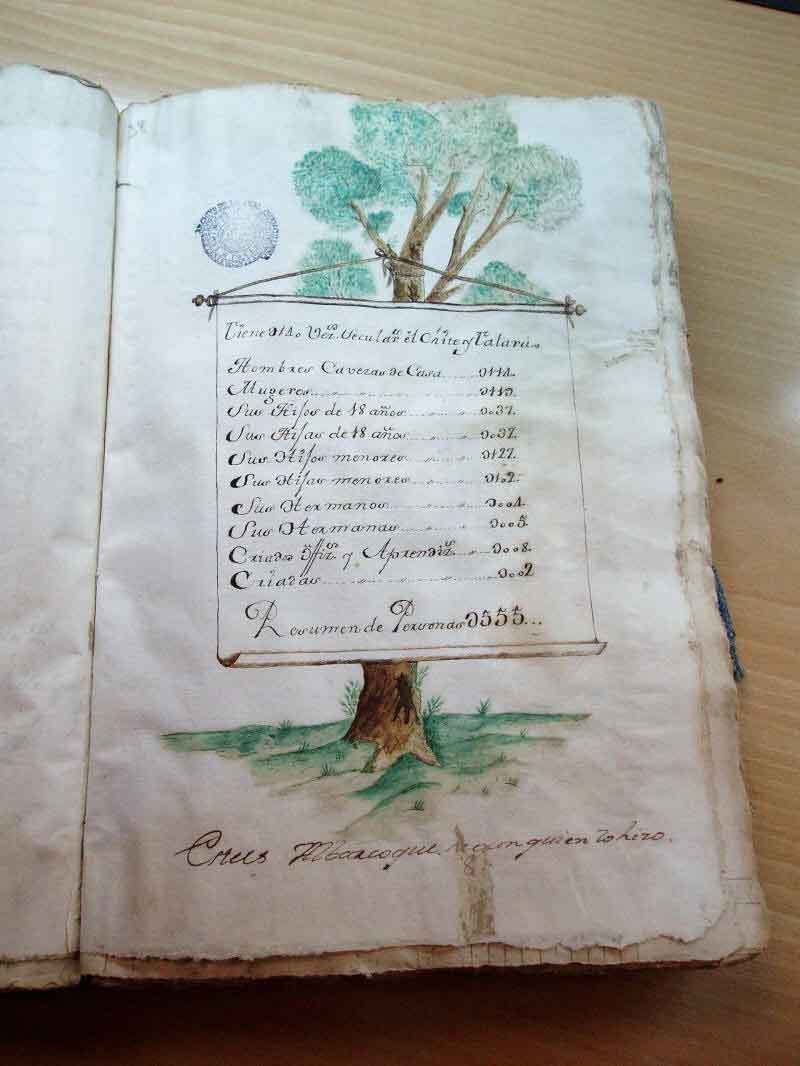 Tiene 0140 Vez.s Secular.s el Chite y Talará.
Hombres Cavezas de Casa 0114.
Mugeres 0119.
Sus Hijos de 18 años 0037.
Sus Hijas de 18 años 0037.
Sus Hijos menores 0127.
Sus Hijas menores 0102.
Sus Hermanos 0004.
Sus Hermanas 0005.
Criados Offiz.s y Aprendiz.s 0008.
Criadas 0002
Resumen de Personas 0555...
quien lo hizo.